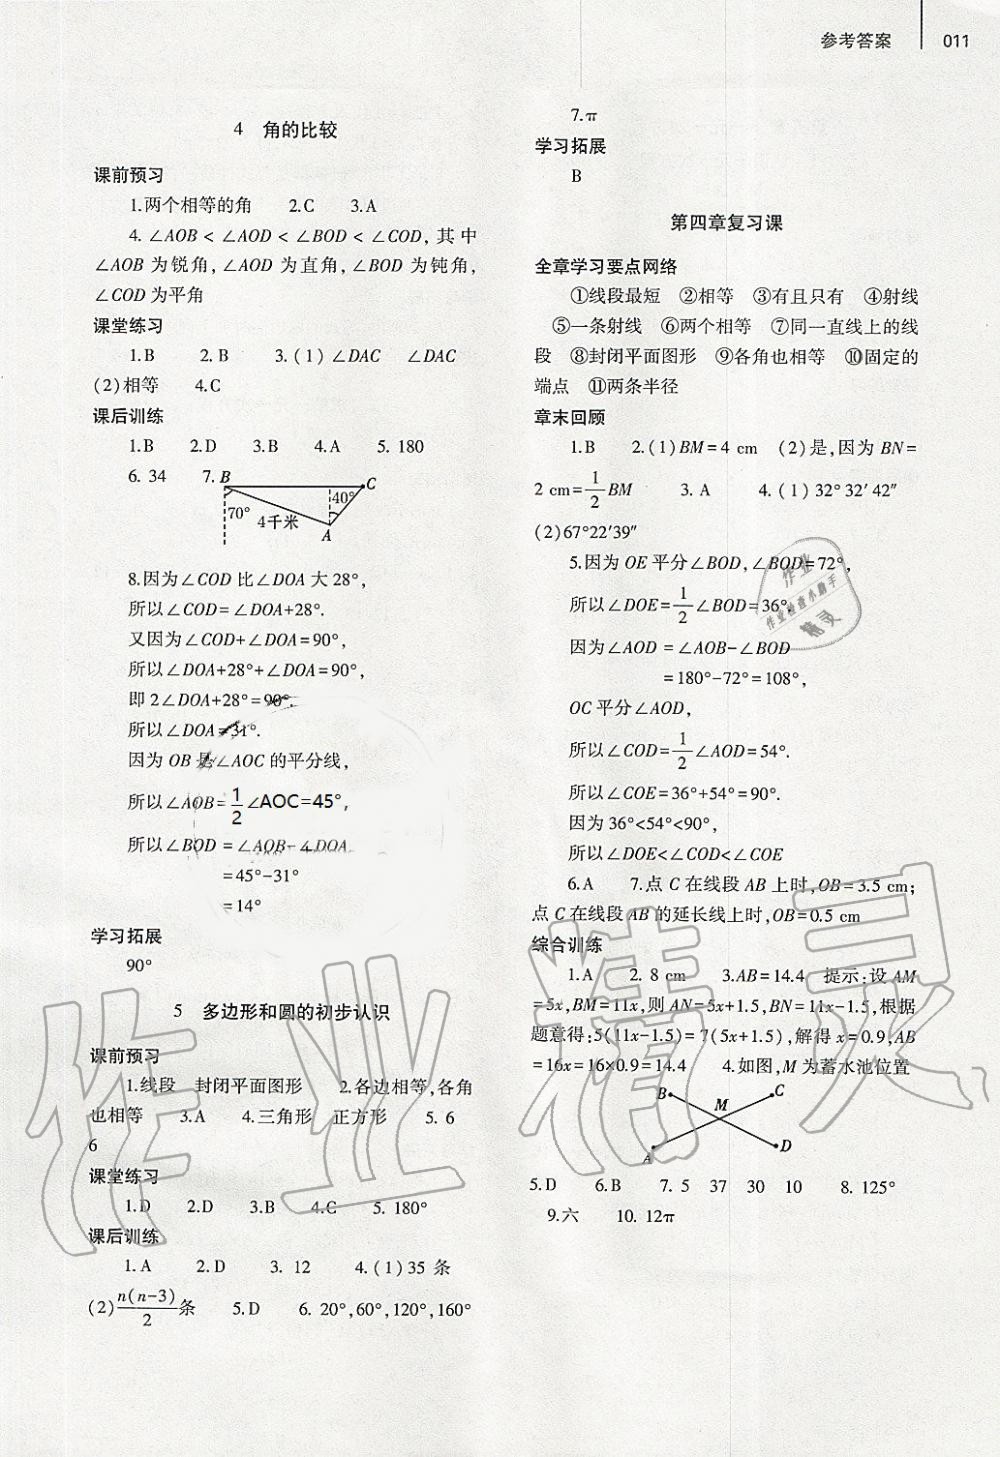 参考答案 011
4 角的比较
课前预习
1.两个相等的角 2.C 3.A
4. ∠AOB < ∠AOD < ∠BOD < ∠COD, 其中
∠AOB 为锐角, ∠AOD 为直角, ∠BOD 为钝角,
∠COD 为平角
课堂练习
1.B 2.B 3.(1) ∠DAC ∠DAC
(2)相等 4.C
课后训练
1.B 2.D 3.B 4.A 5. 180
6. 34 7.
B C
40°
70° 4千米
A
8.因为∠COD 比∠DOA 大 28°,
所以∠COD=∠DOA+28°.
又因为∠COD+∠DOA=90°,
所以∠DOA+28°+∠DOA=90°,
即 2∠DOA+28°=90°.
所以∠DOA=31°.
因为 OB 是∠AOC 的平分线,
所以∠AOB=1/2∠AOC=45°,
所以∠BOD =∠AOB-∠DOA
=45°-31°
=14°
学习拓展
90°
5 多边形和圆的初步认识
课前预习
1.线段 封闭平面图形 2.各边相等,各角
也相等 3.A 4.三角形 正方形 5. 6
6
课堂练习
1.D 2.D 3.B 4.C 5. 180°
课后训练
1.A 2.D 3. 12 4.(1)35 条
(2)n(n-3)/2条 5.D 6. 20°,60°,120°,160°
7.π
学习拓展
B
第四章复习课
全章学习要点网络
①线段最短 ②相等 ③有且只有 ④射线
⑤一条射线 ⑥两个相等 ⑦同一直线上的线
段 ⑧封闭平面图形 ⑨各角也相等 ⑩固定的
端点 ⑪两条半径
章末回顾
1.B 2.(1)BM=4 cm (2)是,因为 BN=
2 cm=1/2BM 3. A 4.(1)32°32′42″
(2)67°22′39″
5.因为 OE 平分∠BOD,∠BOD=72°,
所以∠DOE=1/2∠BOD=36°.
因为∠AOD =∠AOB-∠BOD
=180°-72°=108°,
OC 平分∠AOD,
所以∠COD=1/2∠AOD=54°.
所以∠COE=36°+54°=90°.
因为 36°<54°<90°,
所以∠DOE<∠COD<∠COE
6.A 7.点 C 在线段 AB 上时,OB=3.5 cm;
点 C 在线段 AB 的延长线上时,OB=0.5 cm
综合训练
1.A 2. 8 cm 3.AB=14.4 提示:设 AM
=5x,BM=11x,则 AN=5x+1.5,BN=11x-1.5,根据
题意得:5(11x-1.5)=7(5x+1.5),解得 x=0.9,AB
=16x=16×0.9=14.4 4.如图,M 为蓄水池位置
B M C
A D
5.D 6.B 7. 5 37 30 10 8. 125°
9.六 10. 12π
作业
作业检查小助手
精灵
作业精灵